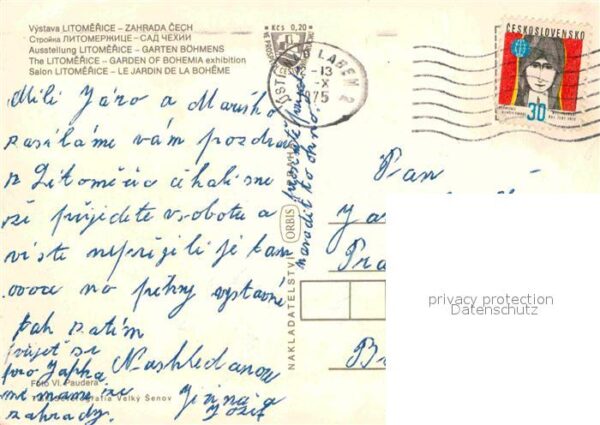 Výstava LITOMĚŘICE – ZAHRADA ČECH
Стройка ЛИТОМЕРЖИЦЕ - САД ЧЕХИИ
Ausstellung LITOMĚŘICE – GARTEN BÖHMENS
The LITOMĚŘICE – GARDEN OF BOHEMIA exhibition
Salon LITOMĚŘICE – LE JARDIN DE LA BOHÊME
Kčs 0,20
LABEM 2
1975
ČESKOSLOVENSKO
30
Milí Járo a Maruško
zasíláme vám pozdrav
z Litoměřic čekali sme
že přijedete v sobotu a
vy ste nepřijeli je tam
ovoce na pěkný výstavě
tak zatím
přijet si
pro Japka Nashledanou
me mame ze
zahrady. Jiřina a
Josef
navadit ko
NAKLADATELSTVÍ ORBIS
Pan
Ja
Pra
Foto Vl. Paudera
Velký Šenov
privacy protection
Datenschutz